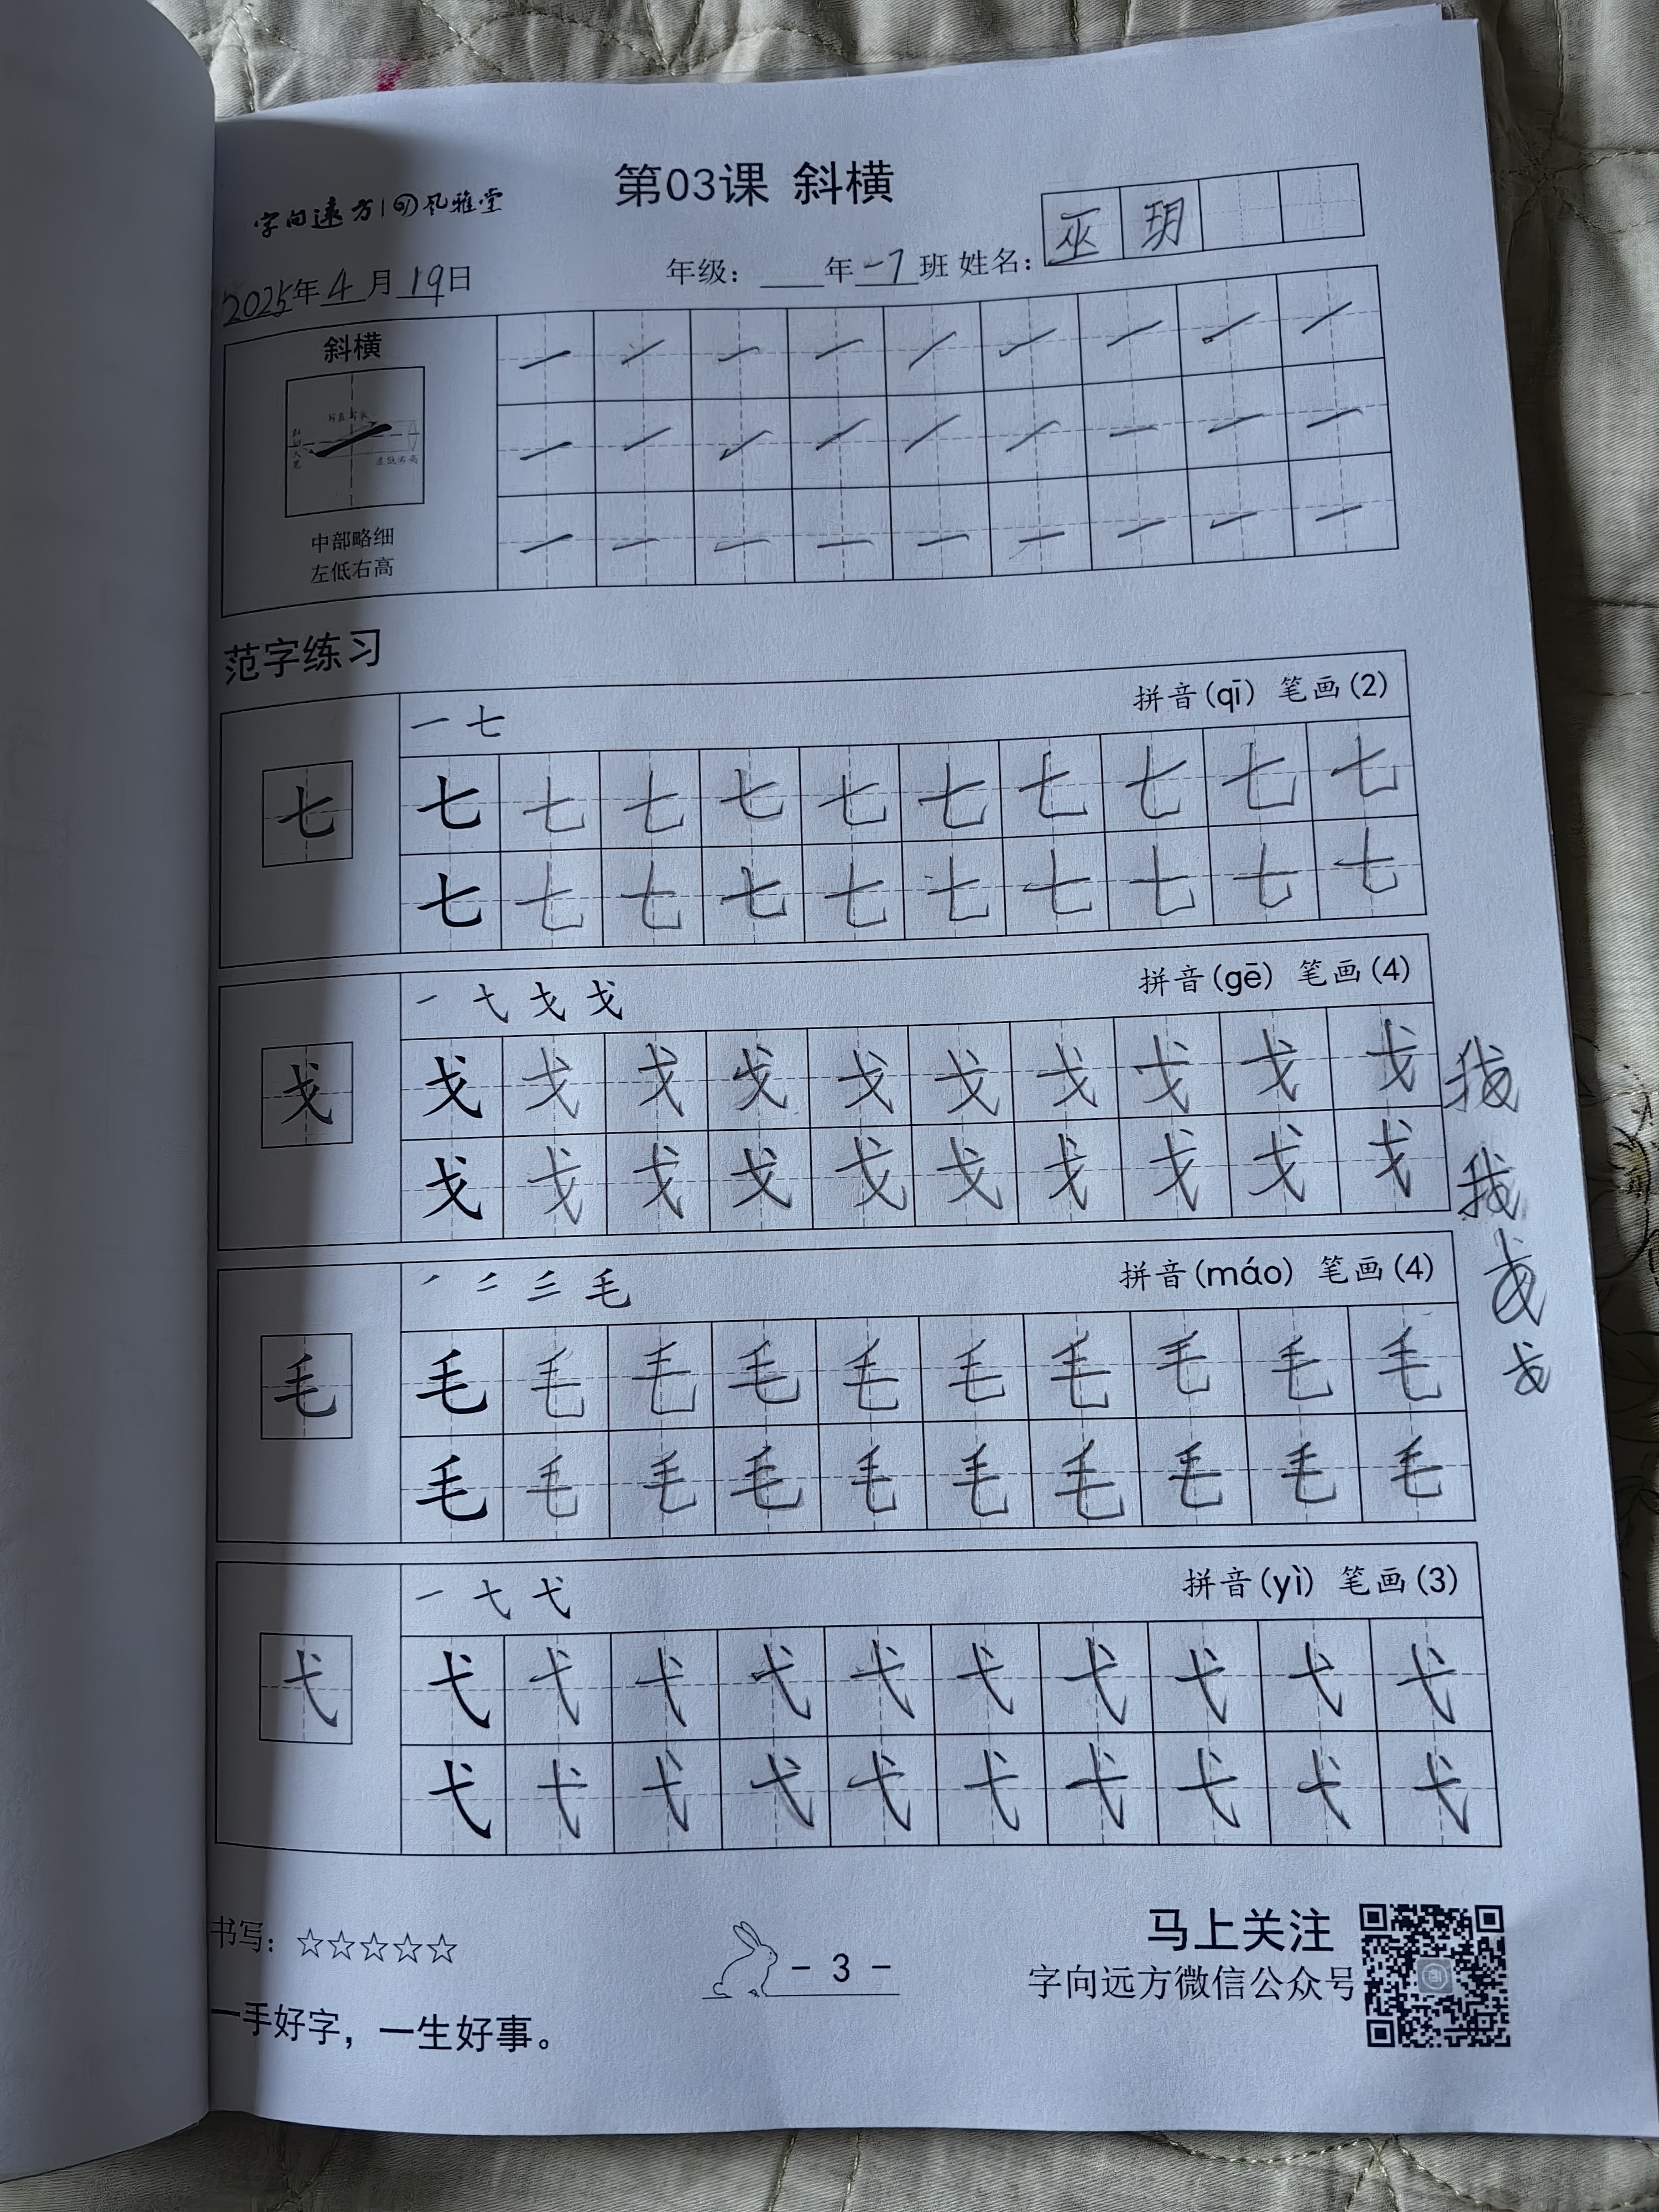 字向远方 风雅堂
第03课 斜横
2025年4月19日
年级: 年一7班 姓名: 巫玥
斜横
中部略细
左低右高
范字练习
一 七 拼音(qī) 笔画(2)
七 七 七 七 七 七 七 七 七 七 七
七 七 七 七 七 七 七 七 七 七
戈 拼音(gē) 笔画(4)
戈 戈 戈 戈 戈 戈 戈 戈 戈 戈 戈 我
戈 戈 戈 戈 戈 戈 戈 戈 戈 戈 我
戈
毛 拼音(máo) 笔画(4)
毛 毛 毛 毛 毛 毛 毛 毛 毛 毛 毛
毛 毛 毛 毛 毛 毛 毛 毛 毛 毛
一 弋 拼音(yì) 笔画(3)
弋 弋 弋 弋 弋 弋 弋 弋 弋 弋 弋
弋 弋 弋 弋 弋 弋 弋 弋 弋 弋
书写: ☆☆☆☆☆
- 3 -
马上关注
字向远方微信公众号
一手好字，一生好事。